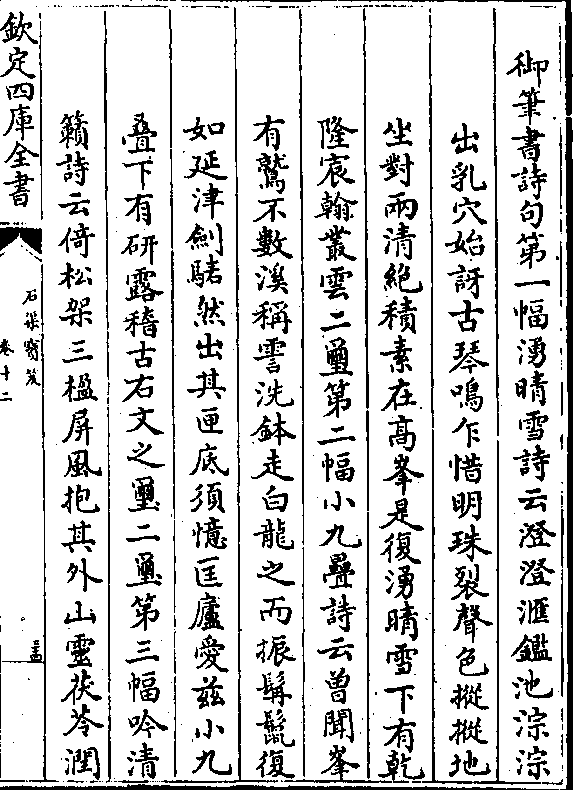 御筆書詩句第一幅湧晴雪詩云澄澄滙鑑池淙淙
出乳穴始訝古琴鳴乍惜明珠裂聲色摐摐地
坐對兩清絶積素在高峯是復湧晴雪下有乾
隆宸翰叢雲二璽第二幅小九疊詩云曽聞峯
有鷲不數溪稱霅洗鉢走白龍之而振髯鬛復
如延津劍騞然出其匣底須憶匡廬愛兹小九
叠下有研露稽古右文之璽二璽第三幅吟清
籟詩云倚松架三楹屏風抱其外山靈茯苓潤
欽定四庫全書
石渠寳笈
卷十二